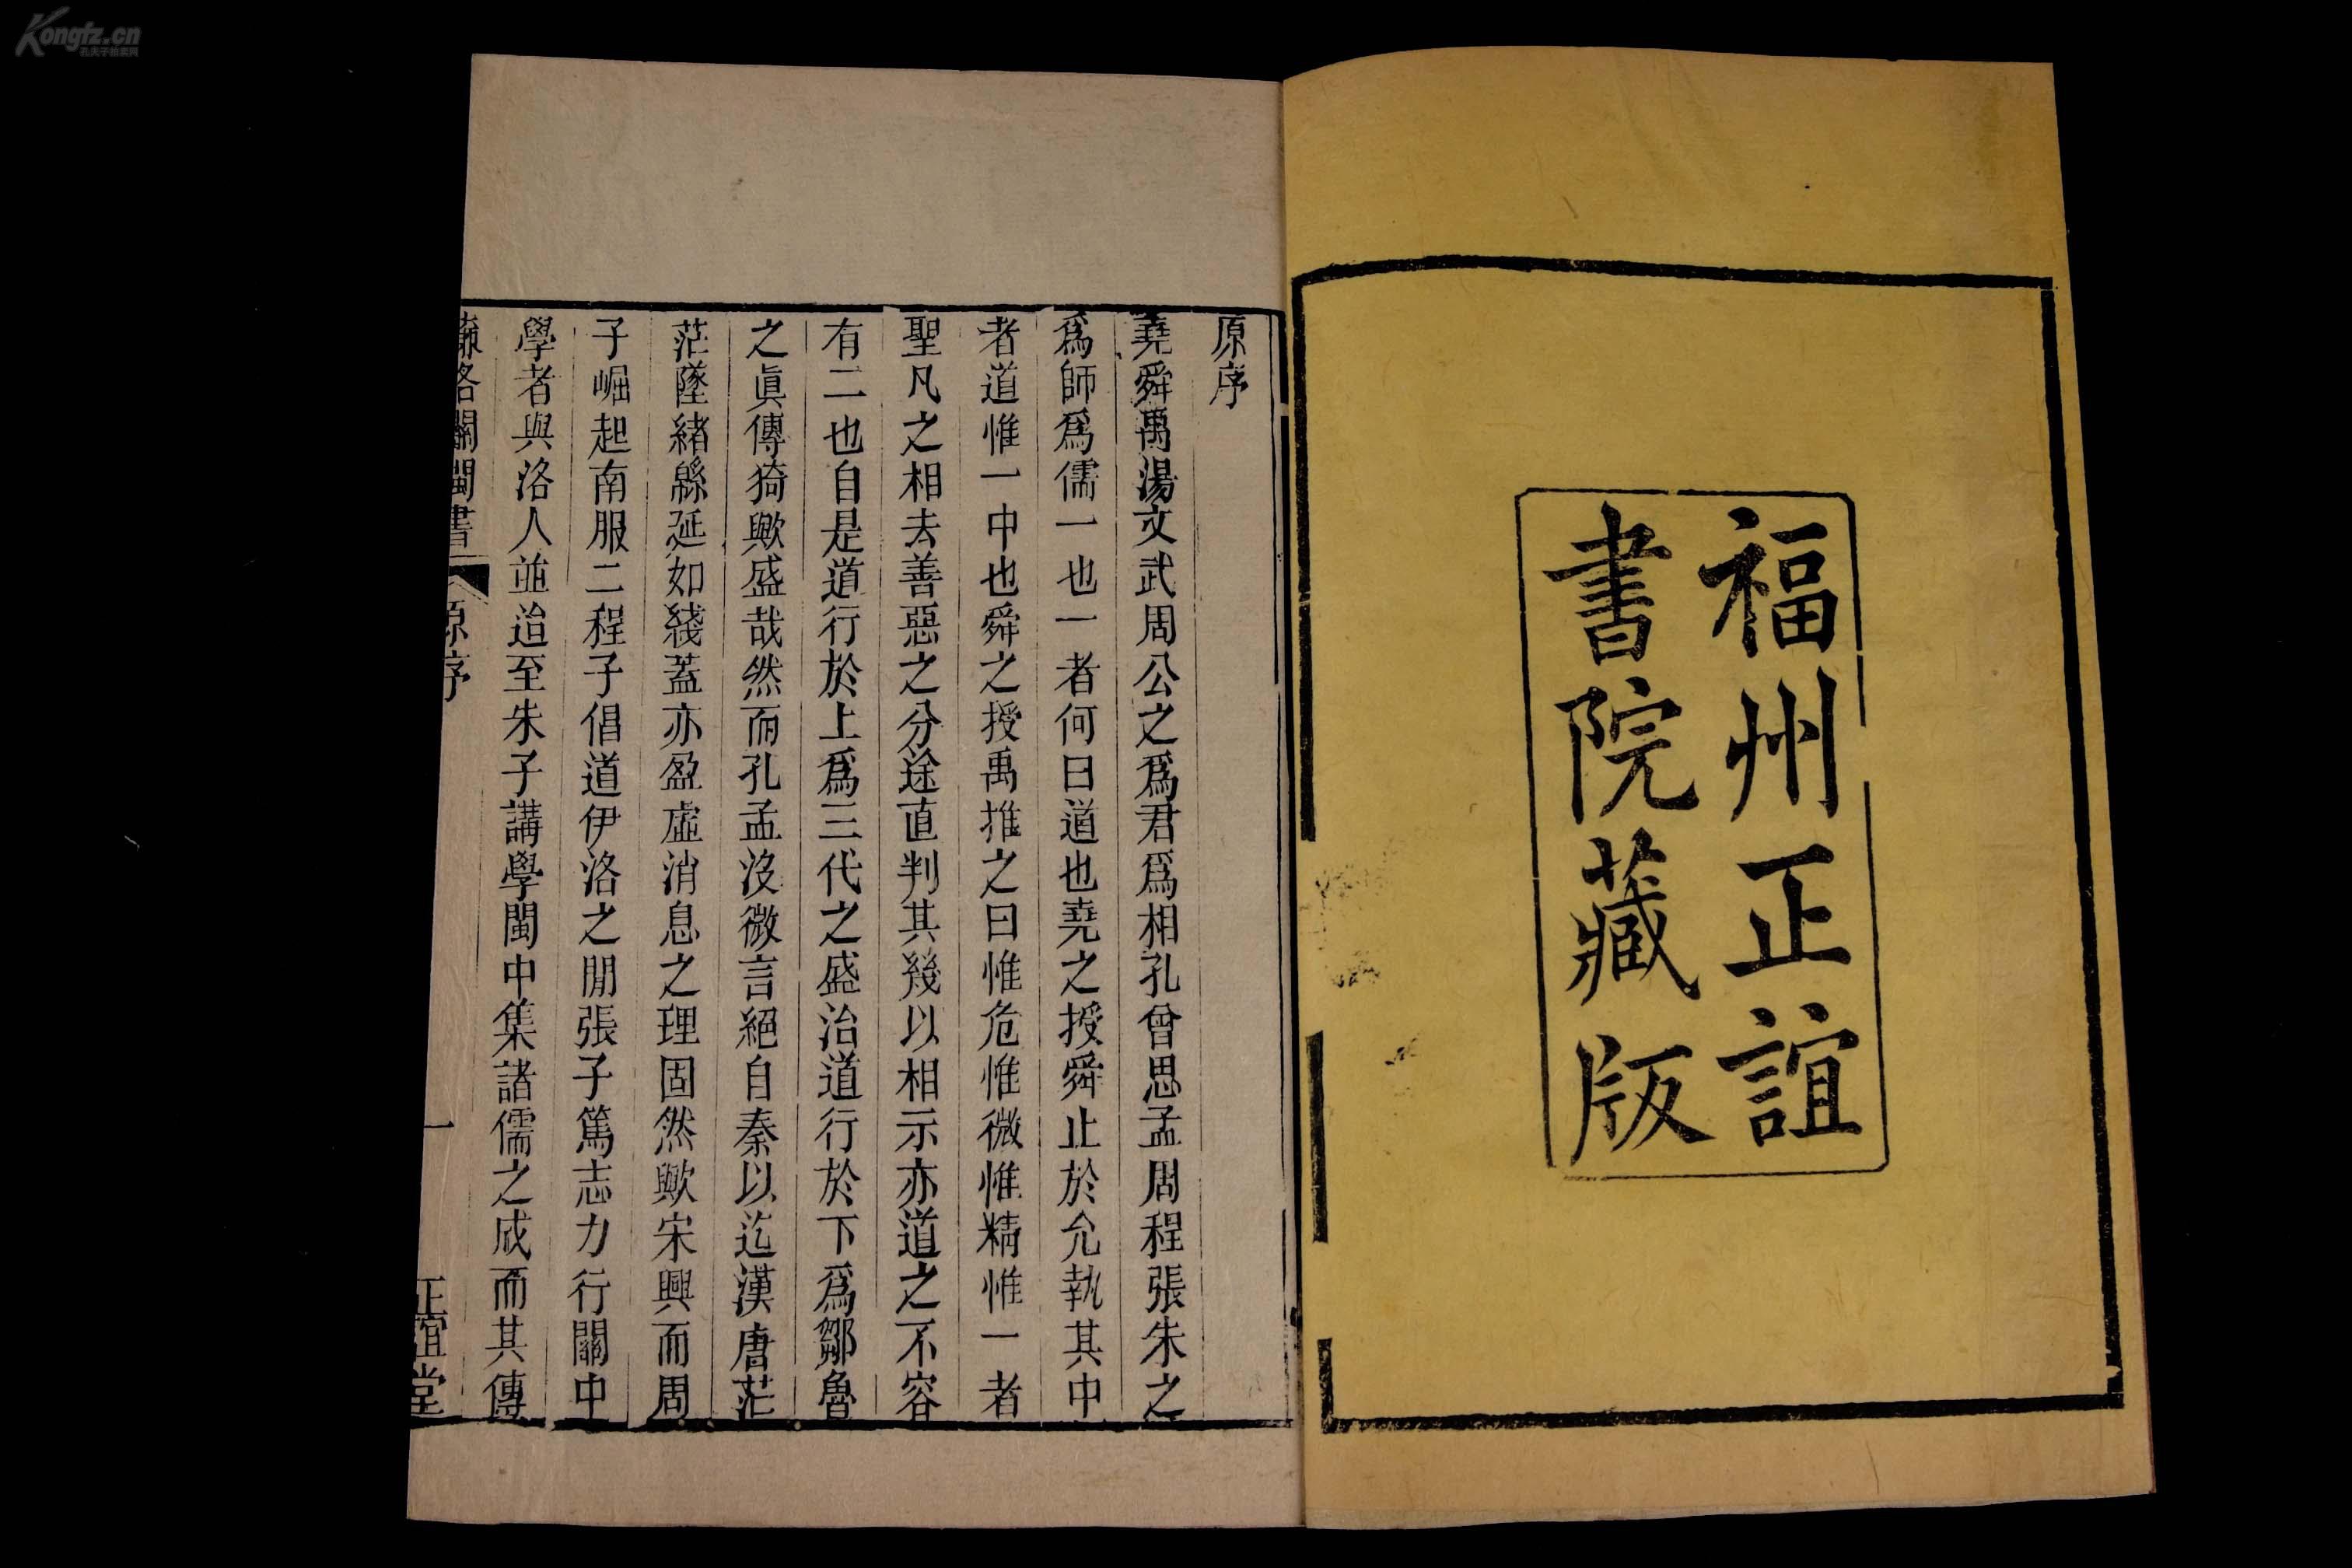 Kongfz.cn
孔夫子旧书网
福州正誼
書院藏版
原序
堯舜禹湯文武周公之爲君爲相孔曾思孟周程張朱之
爲師爲儒一也一者何曰道也堯之授舜止於允執其中
者道惟一中也舜之授禹推之曰惟危惟微惟精惟一者
聖凡之相去善惡之分途直判其幾以相示亦道之不容
有二也自是道行於上爲三代之盛治道行於下爲鄒魯
之眞傳猗歟盛哉然而孔孟沒微言絕自秦以迄漢唐茫
茫墜緒緜延如綫蓋亦盈虛消息之理固然歟宋興而周
子崛起南服二程子倡道伊洛之閒張子篤志力行關中
學者與洛人並迨至朱子講學閩中集諸儒之成而其傳
濂洛關閩書
原序
一
正誼堂